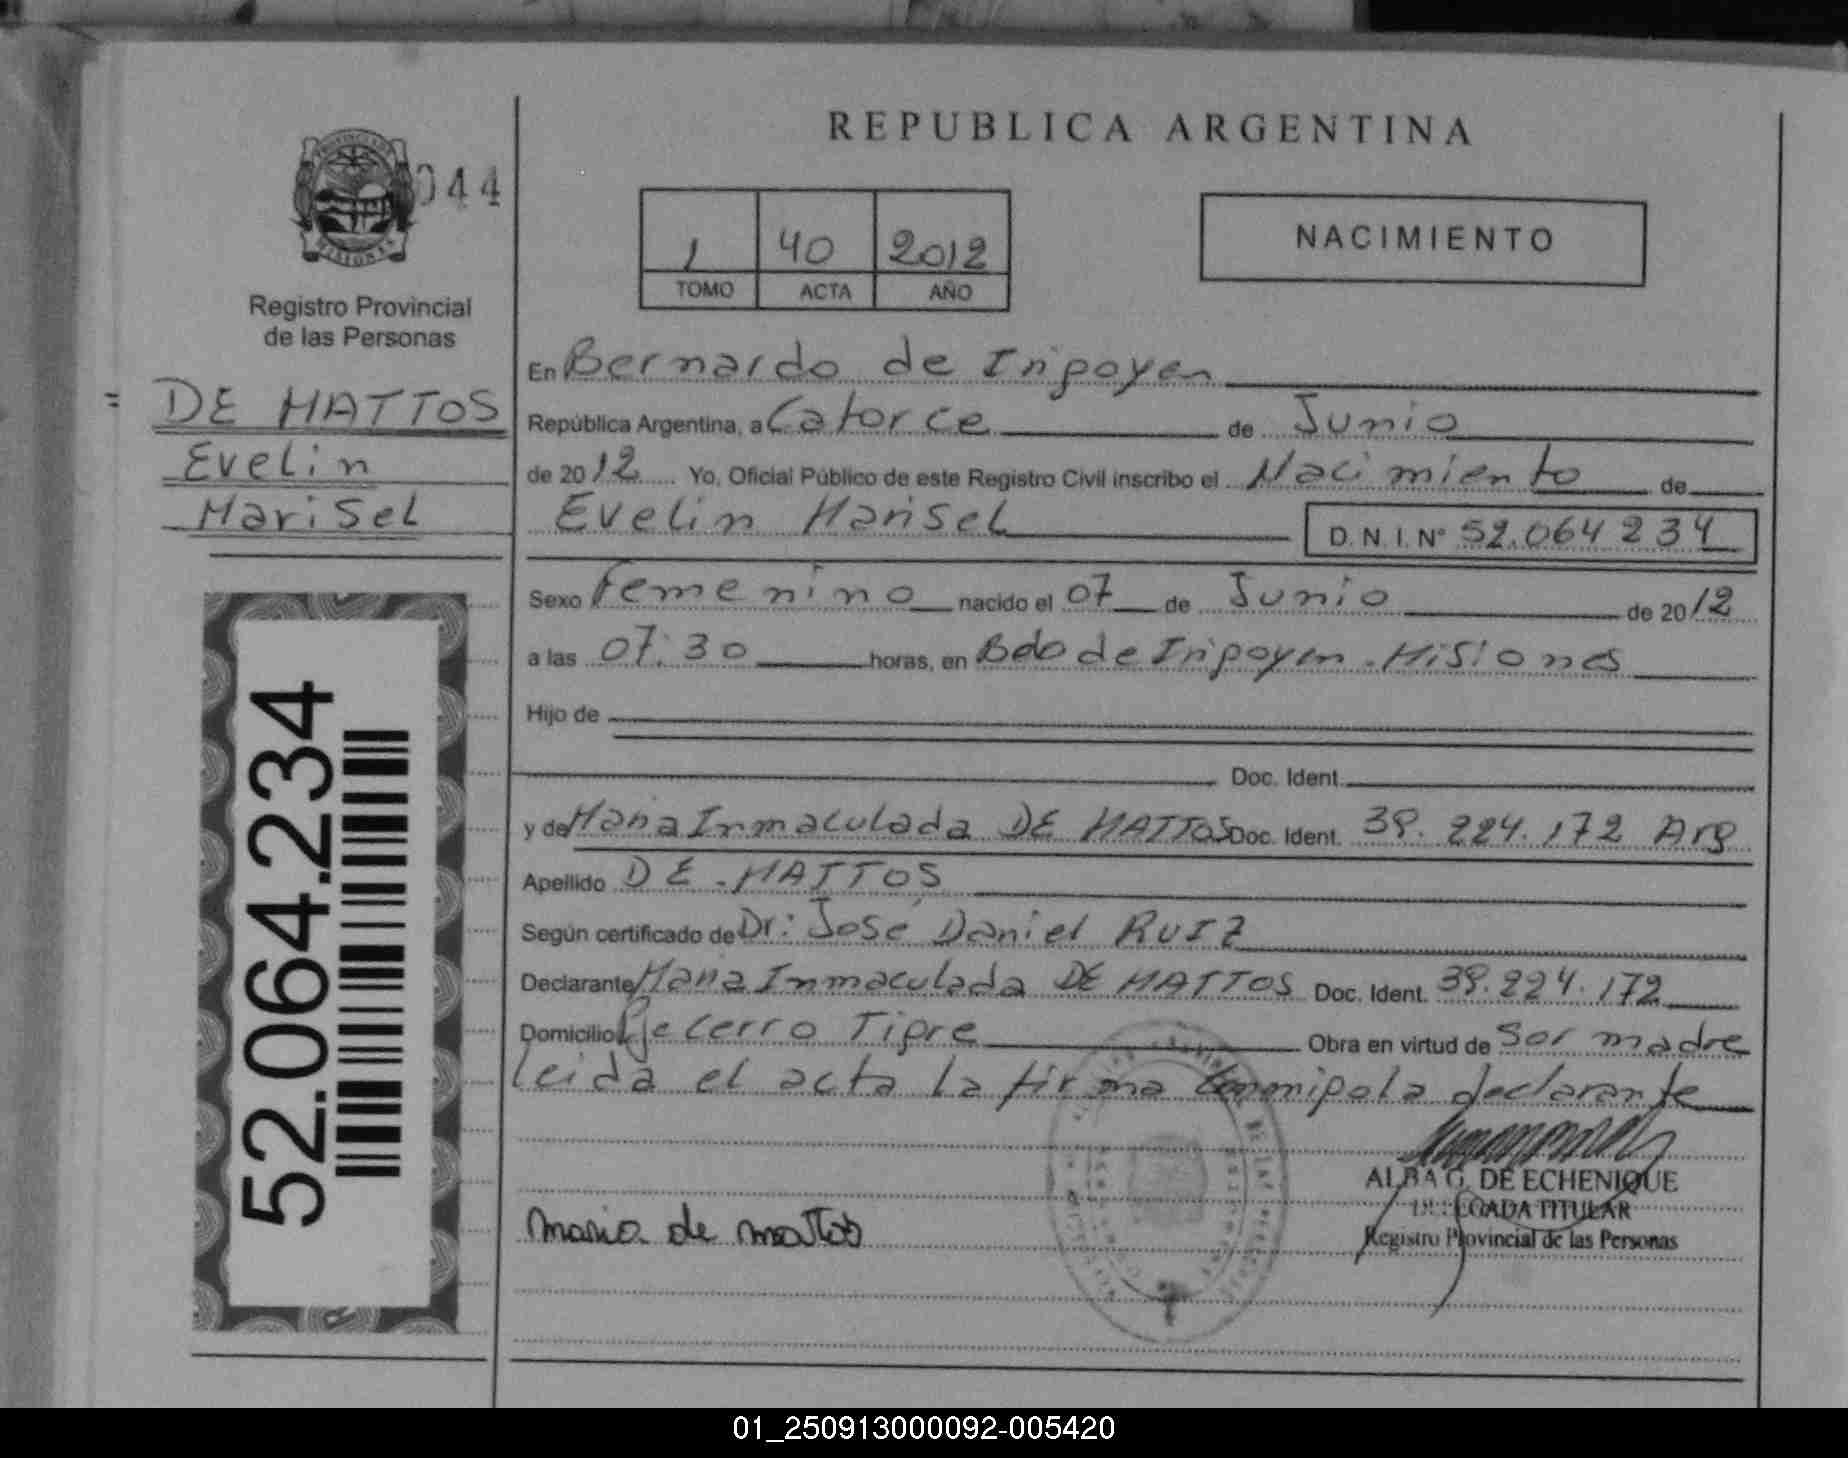 REPUBLICA ARGENTINA
044
1 40 2012
TOMO ACTA AÑO
NACIMIENTO
Registro Provincial
de las Personas
= DE MATTOS
Evelin
MariSel
52.064.234
En Bernardo de Irigoyen
República Argentina, a Catorce de Junio
de 2012 Yo, Oficial Público de este Registro Civil inscribo el Nacimiento de
Evelin Marisel D.N.I. Nº 52.064 234
Sexo Femenino nacido el 07 de Junio de 2012
a las 07:30 horas, en Bdo de Irigoyen. Misiones
Hijo de
Doc. Ident.
y de Maria Inmaculada DE MATTOS Doc. Ident. 39.224.172 Arg
Apellido DE MATTOS
Según certificado de Dr: José Daniel RUIZ
Declarante Maria Inmaculada DE MATTOS Doc. Ident. 39.224.172
Domicilio Tigre Obra en virtud de Ser madre
leida el acta la firma conmigo la declarante
maria de mattos
ALBA G. DE ECHENIQUE
DELEGADA TITULAR
Registro Provincial de las Personas
01_250913000092-005420